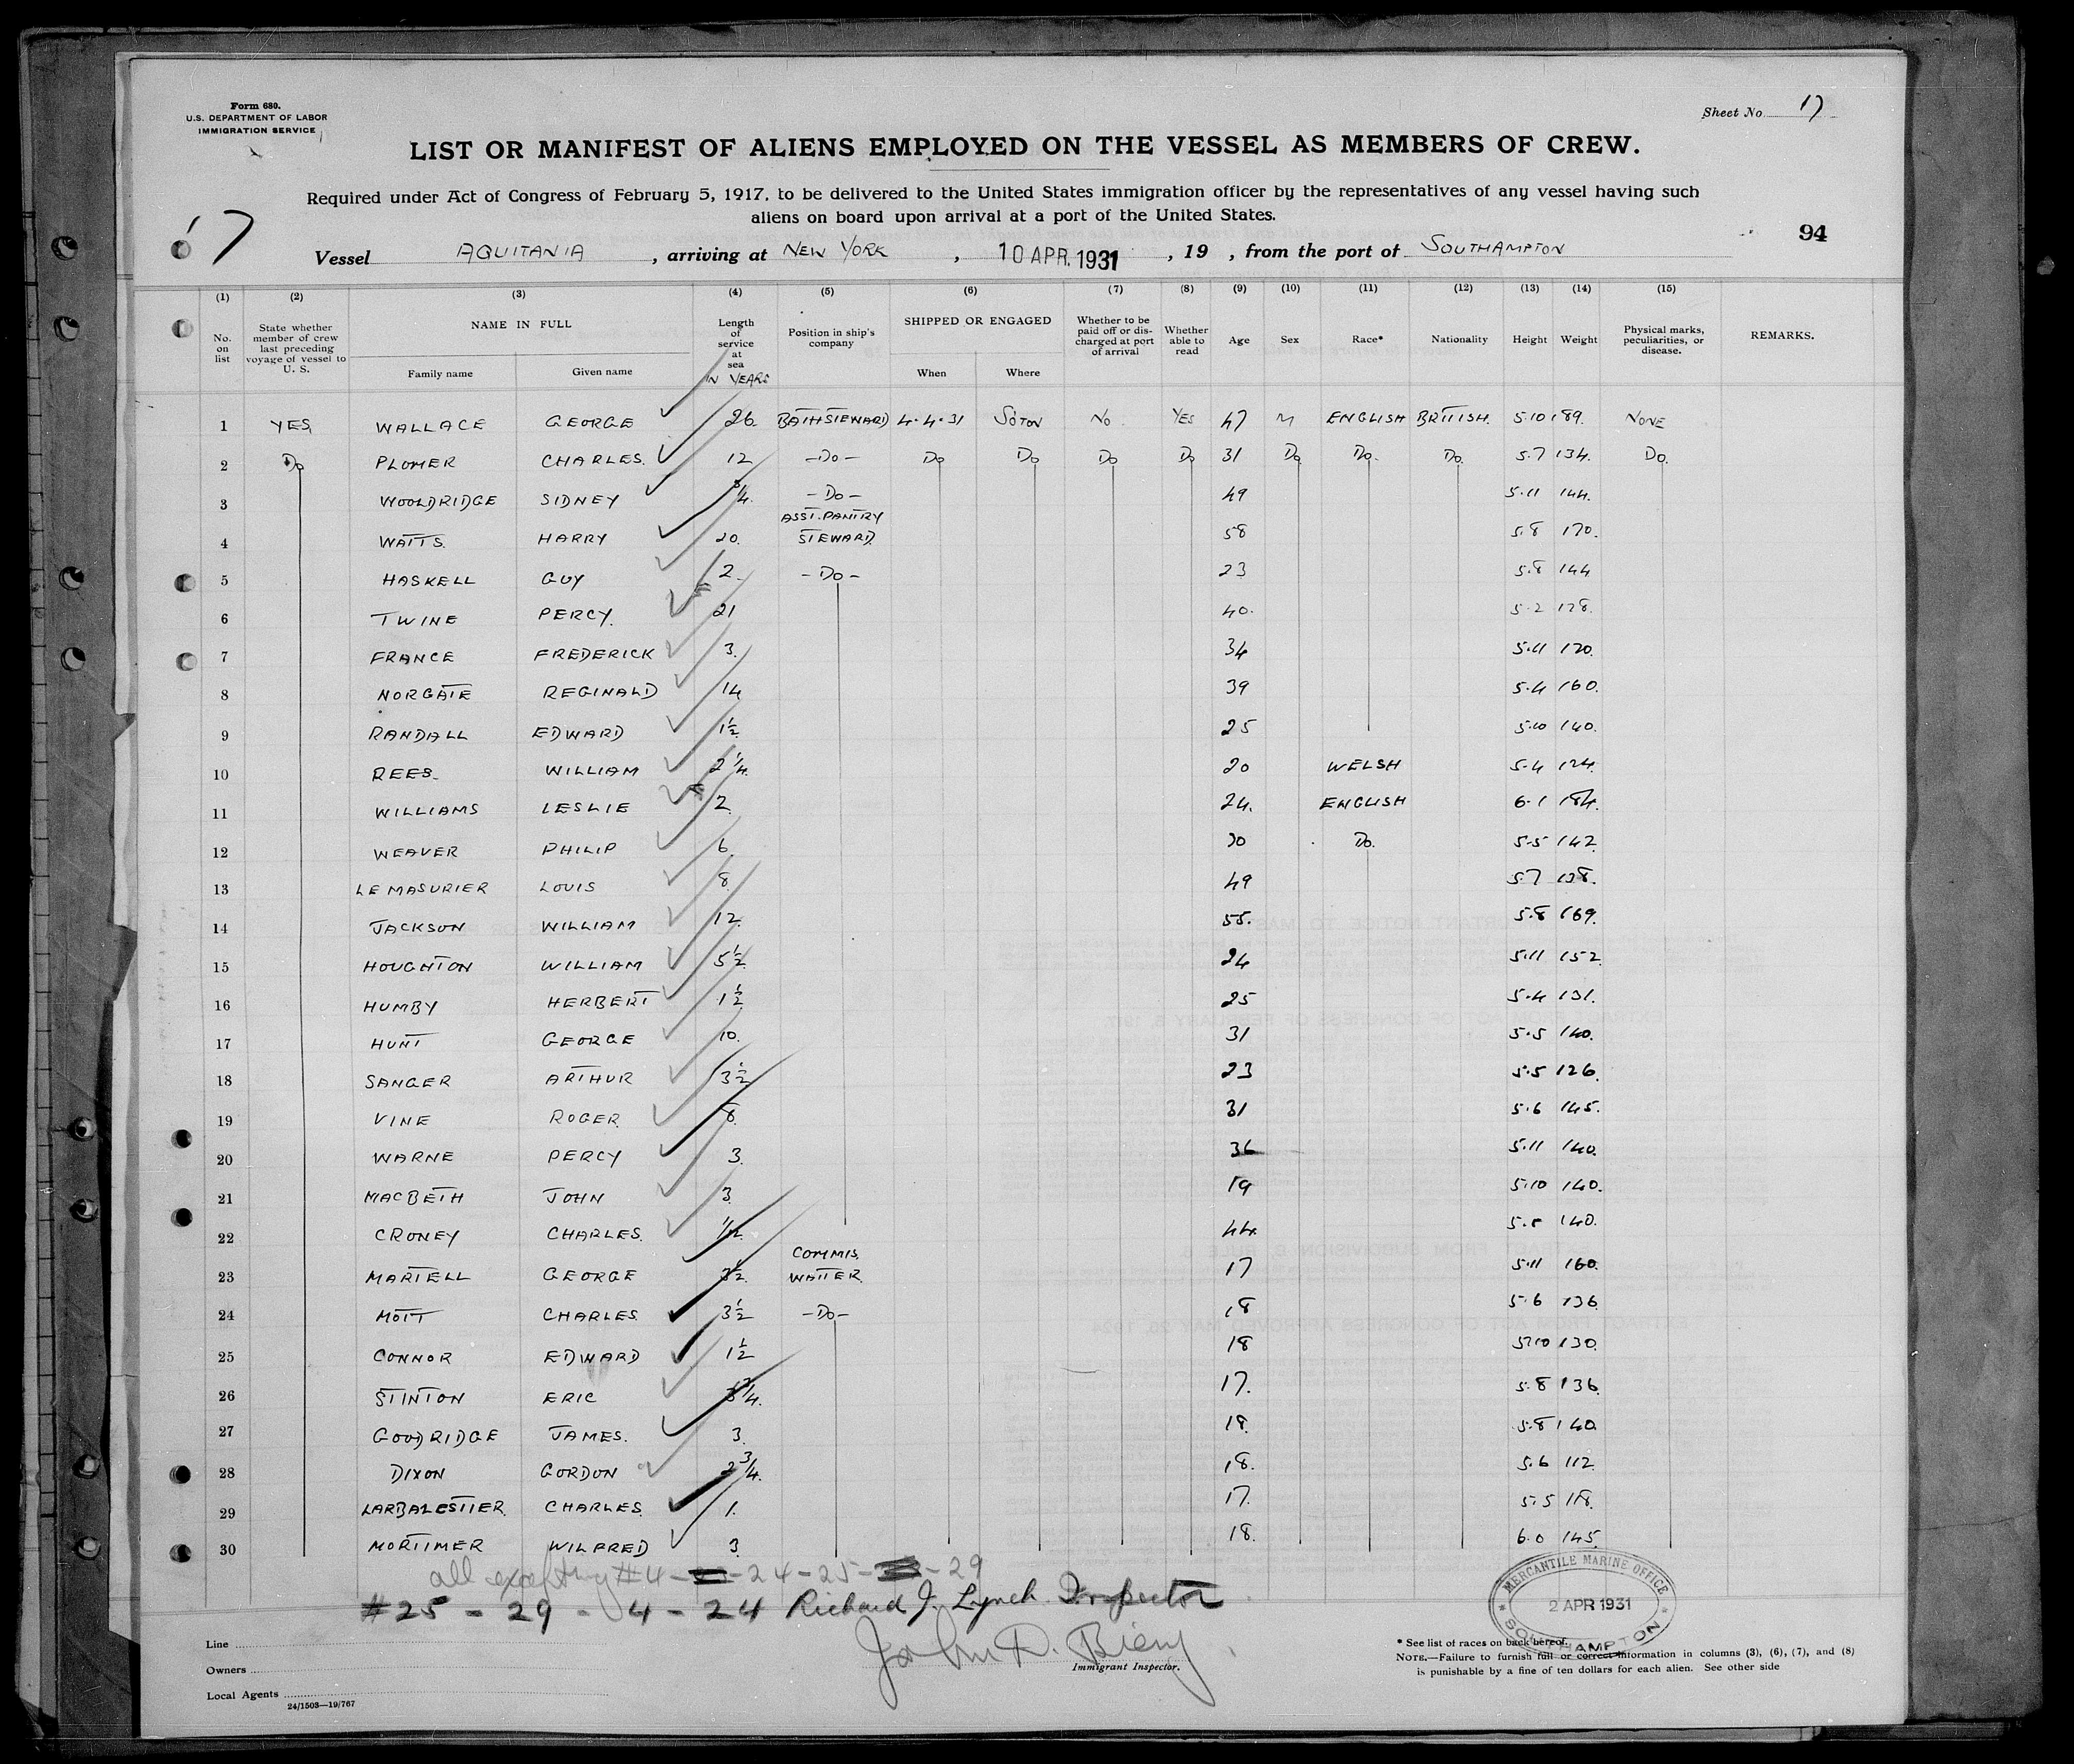 Form 680.
U.S. DEPARTMENT OF LABOR
IMMIGRATION SERVICE
Sheet No 17
LIST OR MANIFEST OF ALIENS EMPLOYED ON THE VESSEL AS MEMBERS OF CREW.
Required under Act of Congress of February 5, 1917, to be delivered to the United States immigration officer by the representatives of any vessel having such
aliens on board upon arrival at a port of the United States.
17
94
Vessel AQUITANIA , arriving at NEW YORK , 10 APR. 1931 , 19 , from the port of SOUTHAMPTON
(1) (2) (3) (4) (5) (6) (7) (8) (9) (10) (11) (12) (13) (14) (15)
No. on list State whether member of crew last preceding voyage of vessel to U. S. NAME IN FULL Length of service at sea IN YEARS Position in ship's company SHIPPED OR ENGAGED Whether to be paid off or discharged at port of arrival Whether able to read Age Sex Race* Nationality Height Weight Physical marks, peculiarities, or disease. REMARKS.
Family name Given name When Where
1 YES WALLACE GEORGE 26 BATHSTEWARD 4.4.31 SOTON NO YES 47 M ENGLISH BRITISH. 5.10 189. NONE
2 Do PLOMER CHARLES. 12 -Do- Do Do Do Do 31 Do Do. Do. 5.7 134. Do.
3 WOOLDRIDGE SIDNEY 3/4. -Do- 49 5.11 144.
4 WATTS. HARRY 20. ASST. PANTRY STEWARD. 58 5.8 170.
5 HASKELL GUY 2. -Do- 23 5.8 144
6 TWINE PERCY. 21 40. 5.2 128.
7 FRANCE FREDERICK 3. 34 5.11 170.
8 NORGATE REGINALD 14 39 5.4 160.
9 RANDALL EDWARD 1½ 25 5.10 140.
10 REES. WILLIAM 2¼. 20 WELSH 5.4 124.
11 WILLIAMS LESLIE 2. 24. ENGLISH 6.1 184.
12 WEAVER PHILIP 6. 30 Do. 5.5 142.
13 LE MASURIER LOUIS 8. 49 5.7 138.
14 JACKSON WILLIAM 12. 55. 5.8 169.
15 HOUGHTON WILLIAM 5½ 24 5.11 152.
16 HUMBY HERBERT 1½ 25 5.4 131.
17 HUNT GEORGE 10. 31 5.5 140.
18 SANGER ARTHUR 3½ 23 5.5 126.
19 VINE ROGER. 8. 31 5.6 145.
20 WARNE PERCY 3. 36 5.11 140.
21 MACBETH JOHN 3. 19 5.10 140.
22 CRONEY CHARLES. 44. 140.
23 MARTELL GEORGE 3½. COMMIS. WAITER. 17 5.11 160.
24 MOTT CHARLES. 3½ -Do- 18 5.6 136.
25 CONNOR EDWARD 1½ 18 5.10 130.
26 STINTON ERIC 17. 5.8 136.
27 GOODRIDGE JAMES. 3. 18. 5.8 140.
28 DIXON GORDON 2¾. 18. 5.6 112.
29 LARBALESTIER. CHARLES. 1. 17. 5.5 118.
30 MORTIMER WILFRED 3. 18. 6.0 145.
all excepting #4 - 24 - 25 - 29
#25 - 29 - 4 - 24 Richard J. Lynch Inspector
MERCANTILE MARINE OFFICE
2 APR 1931
SOUTHAMPTON
Line
Owners
Local Agents
24/1503—19/767
John D.
Immigrant Inspector.
* See list of races on back hereof.
NOTE.—Failure to furnish full or correct information in columns (3), (6), (7), and (8)
is punishable by a fine of ten dollars for each alien. See other side